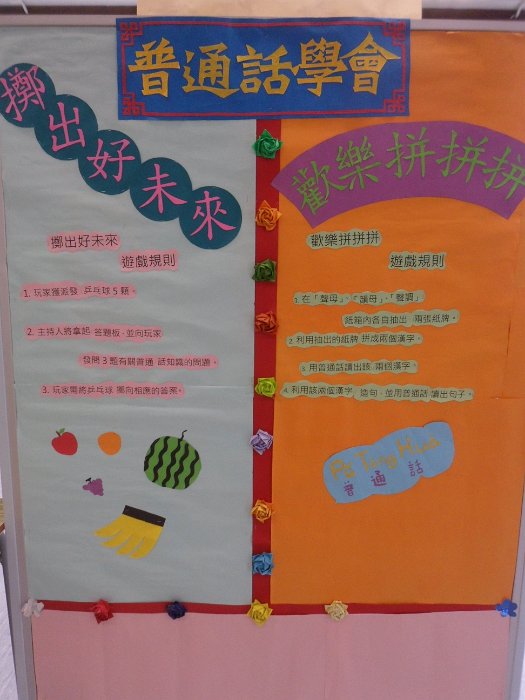 普通話學會
擲出好未來
擲出好未來
遊戲規則
1. 玩家獲派發 乒乓球 5 顆。
2. 主持人將拿起 答題板，並向玩家
發問 3 題有關普通 話知識的問題。
3. 玩家需將乒乓球 擲向相應的答案。
歡樂拼拼拼
歡樂拼拼拼
遊戲規則
1. 在「聲母」、「韻母」、「聲調」
紙箱內各自抽出 兩張紙牌。
2. 利用抽出的紙牌 拼成兩個漢字。
3. 用普通話讀出該 兩個漢字。
4. 利用該兩個漢字 造句，並用普通話 讀出句子。
Pu Tong Hua
普通話